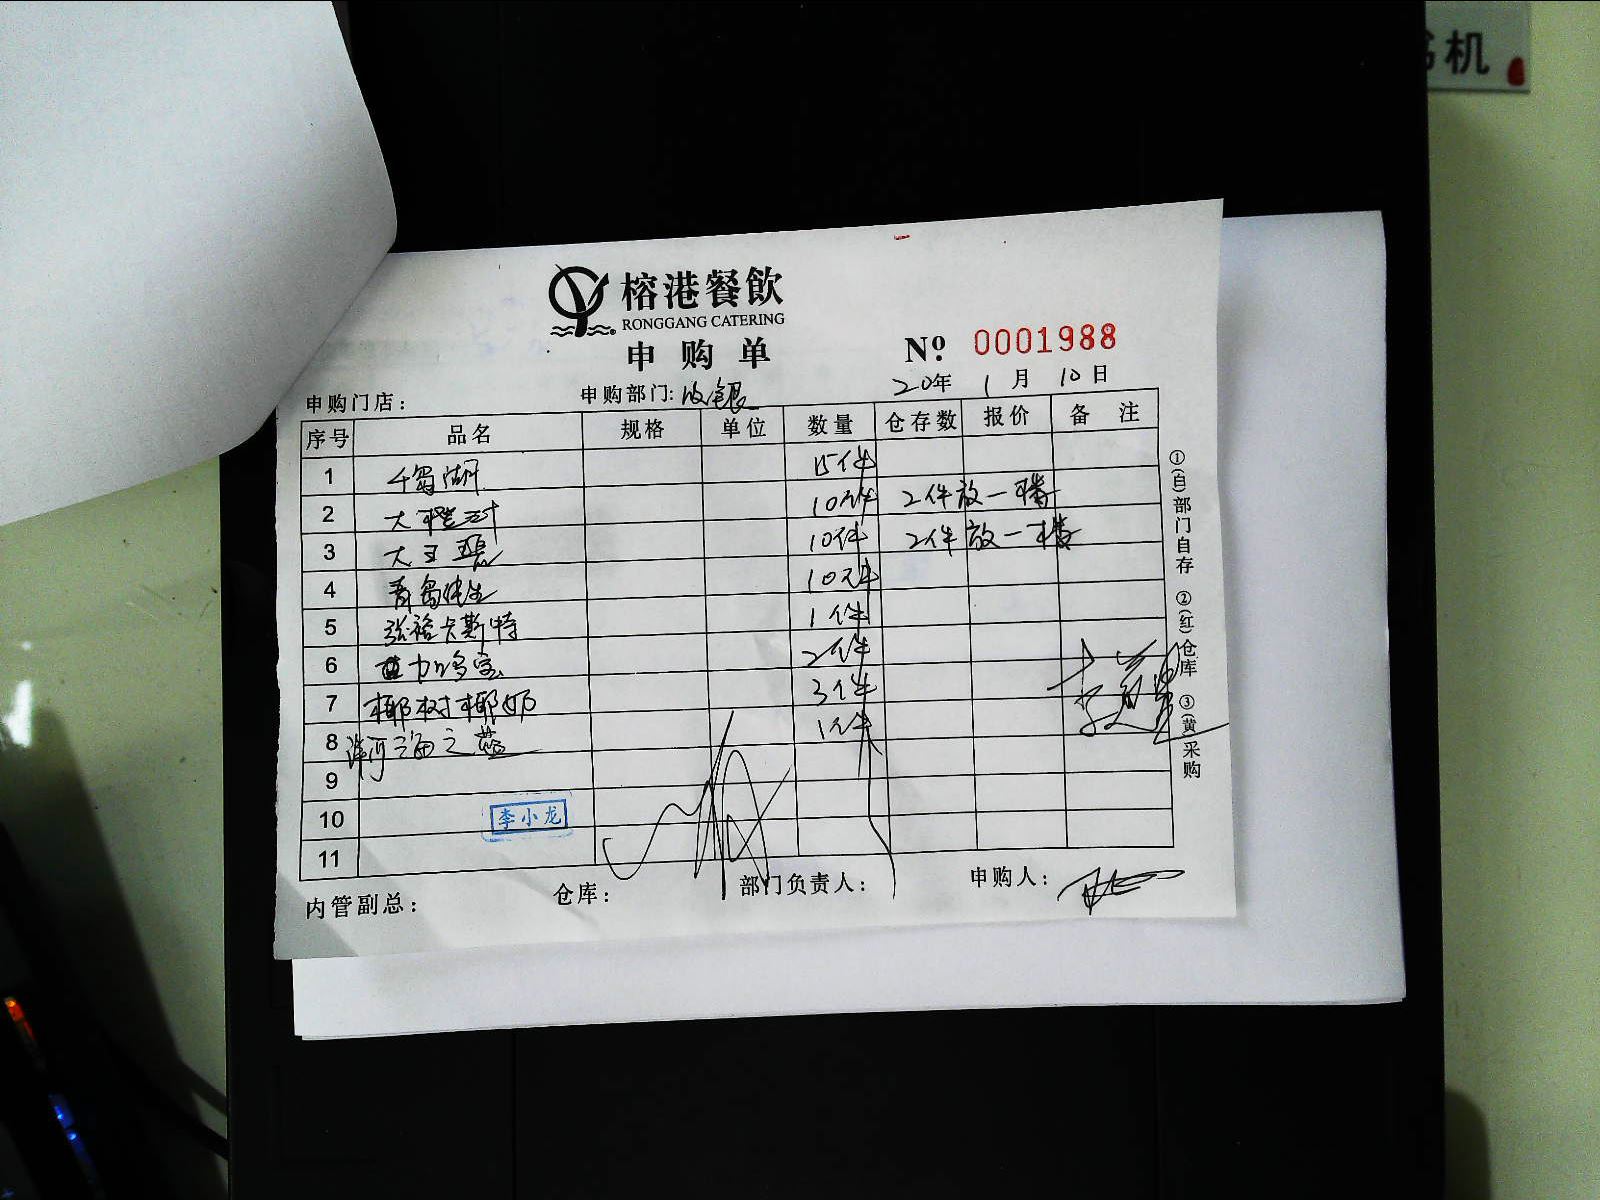 书机
榕港餐飲
RONGGANG CATERING
申购单
№: 0001988
申购门店： 申购部门: 收银 20年 1月 10日
序号 品名 规格 单位 数量 仓存数 报价 备注
1 千岛湖 15件
2 大橙汁 10件 2件放一楼
3 大王 10件 2件放一楼
4 青岛纯生 10件
5 张裕卡斯特 1件
6 加多宝 2件
7 椰树椰奶 3件
8 洋河海之蓝 1件
9
10 李小龙
11
内管副总： 仓库： 部门负责人： 申购人：
①(白)部门自存 ②(红)仓库 ③(黄)采购